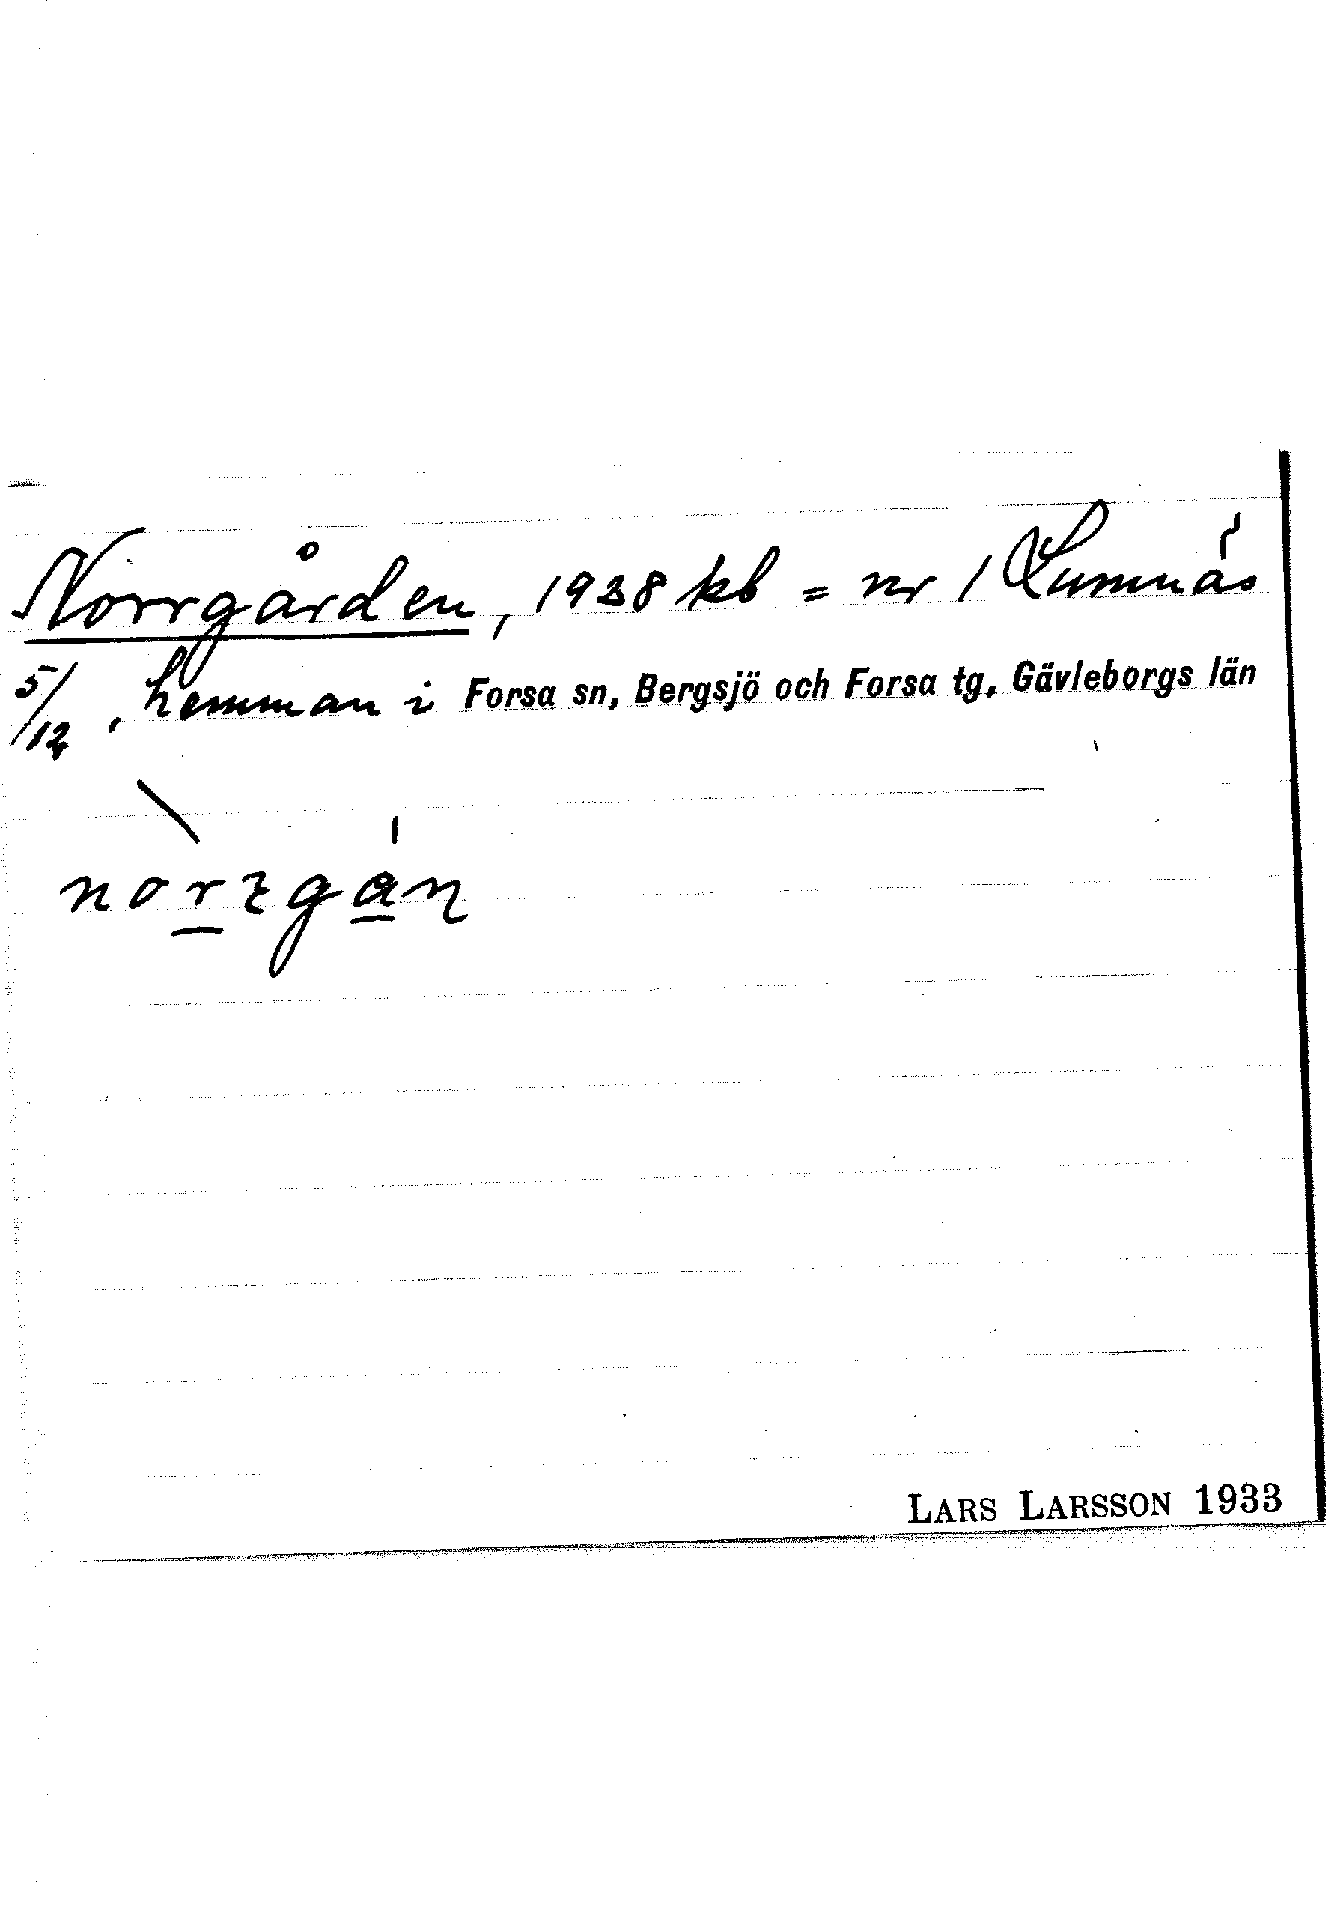 Norrgården, 1938 kb = nr 1 Lumnäs
5/12, hemman i Forsa sn, Bergsjö och Forsa tg, Gävleborgs län
norrgán
LARS LARSSON 1933